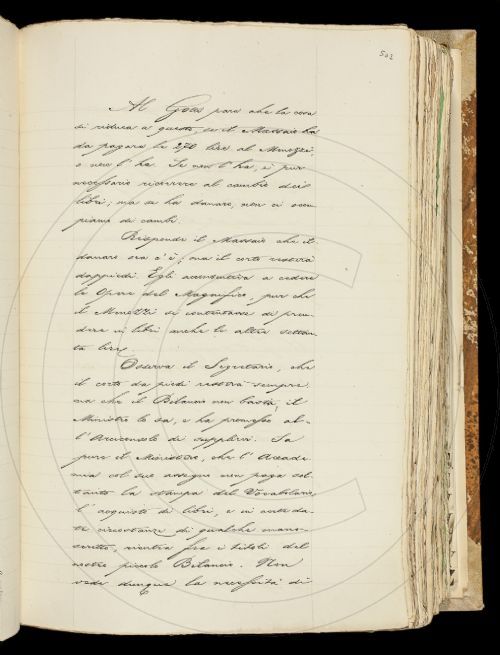 502
Al Gotti pare che la cosa
si riduca a questo, se il Massaio ha
da pagare le 270 lire al Menozzi,
o non l'ha. Se non l'ha, è pur
necessario ricorrere al cambio dei
libri; ma se ha danaro, non ci occu
piamo di cambi.
Risponde il Massaio che il
danaro ora c'è; ma il corto resterà
dappiedi. Egli acconsentiva a cedere
le Opere del Magnifico, pur che
il Menozzi si contentasse di pren-
dere in libri anche le altre settan-
ta lire.
Osserva il Segretario, che
il corto da piedi resterà sempre:
ma che il Bilancio non basta, il
Ministro lo sa, e ha promesso al-
l'Arciconsolo di supplirvi. Sa
pure il Ministero, che l'Accade-
mia col suo assegno non paga sol-
tanto la stampa del Vocabolario,
l'acquisto di libri, e in certe da-
te circostanze di qualche mano-
scritto, rientra fra i titoli del
nostro piccolo Bilancio. Non
vede dunque la necessità di